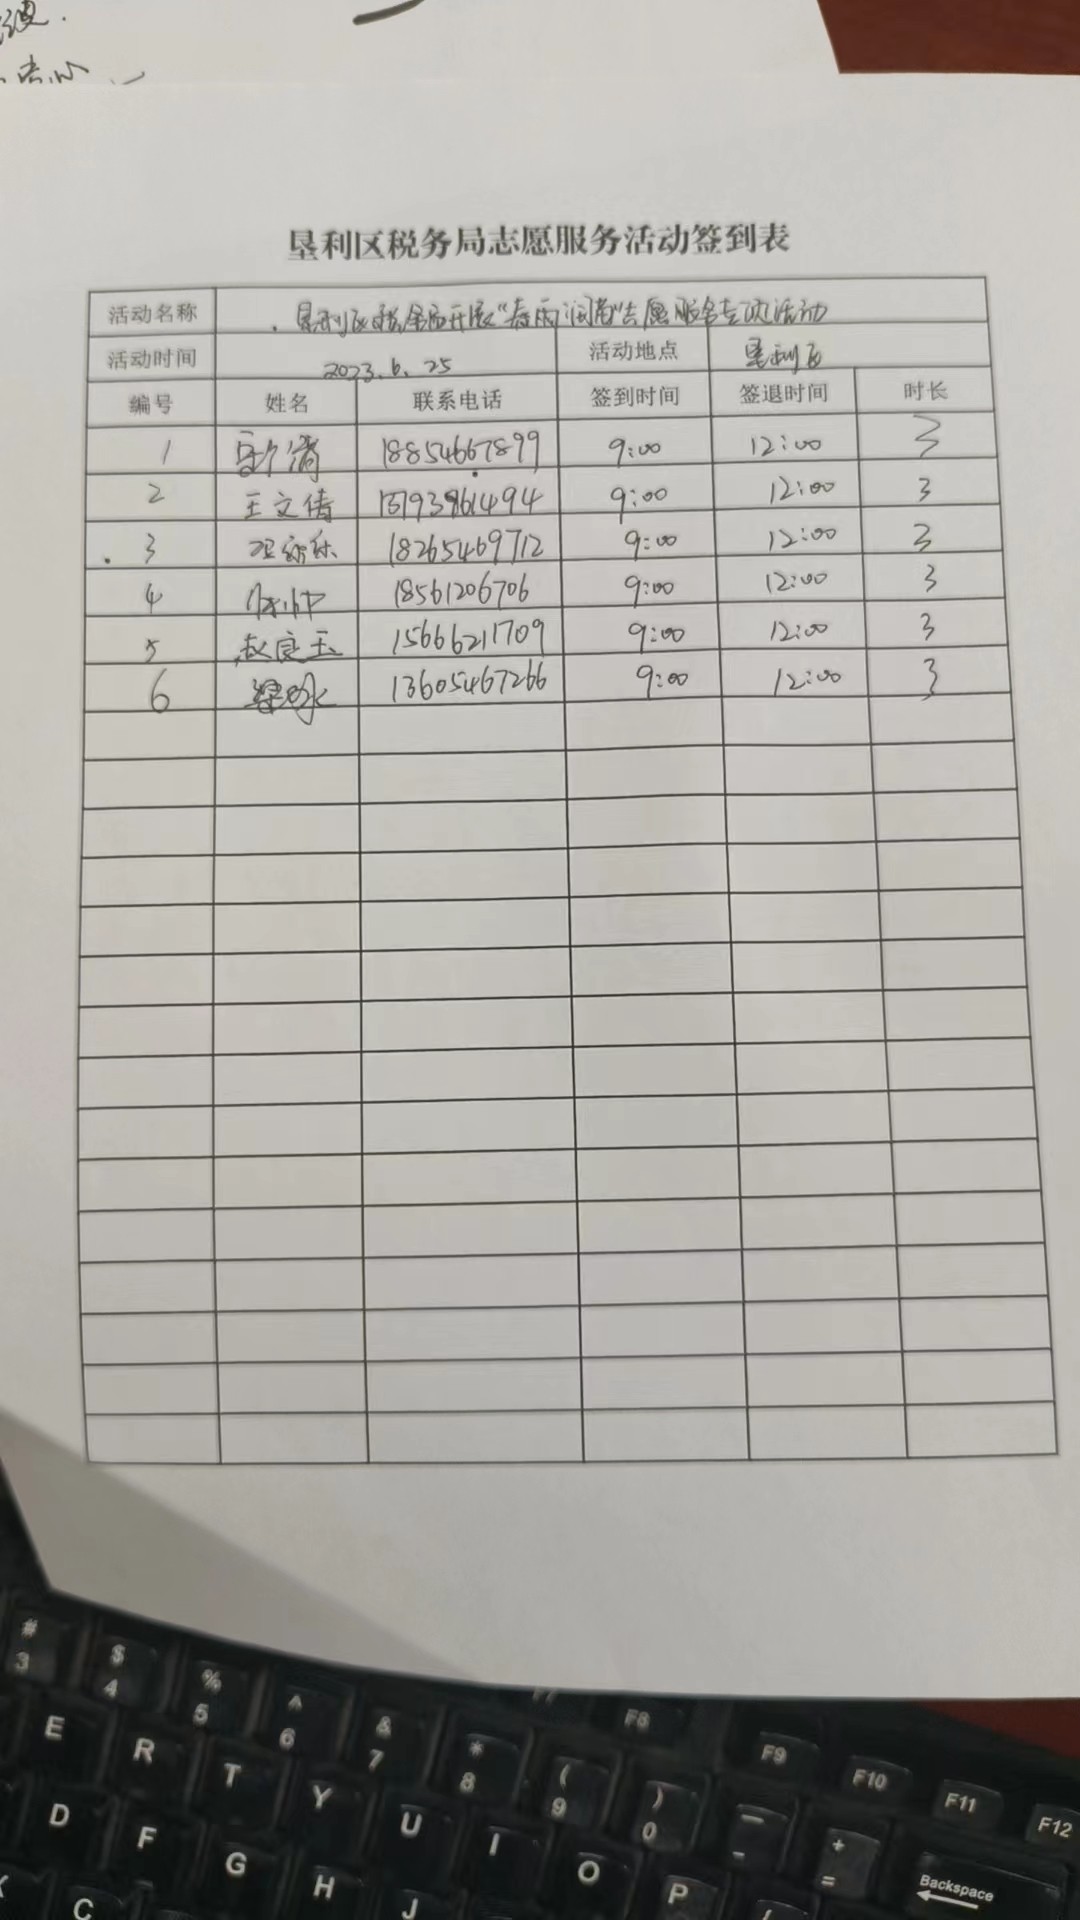 垦利区税务局志愿服务活动签到表
活动名称 垦利区税务局开展"春雨润苗"志愿服务专项活动
活动时间 2023.6.25 活动地点 垦利区
编号 姓名 联系电话 签到时间 签退时间 时长
1 18854667899 9:00 12:00 3
2 王文倩 9:00 12:00 3
3 18265469712 9:00 12:00 3
4 18561206706 9:00 12:00 3
5 赵良玉 15666211709 9:00 12:00 3
6 13605467266 9:00 12:00 3
# 3 $ 4 % 5 ^ 6 & 7 * 8 ( 9 ) 0 — - + =
F7 F8 F9 F10 F11 F12
E R T Y U I O P
Backspace
D F G H J
C